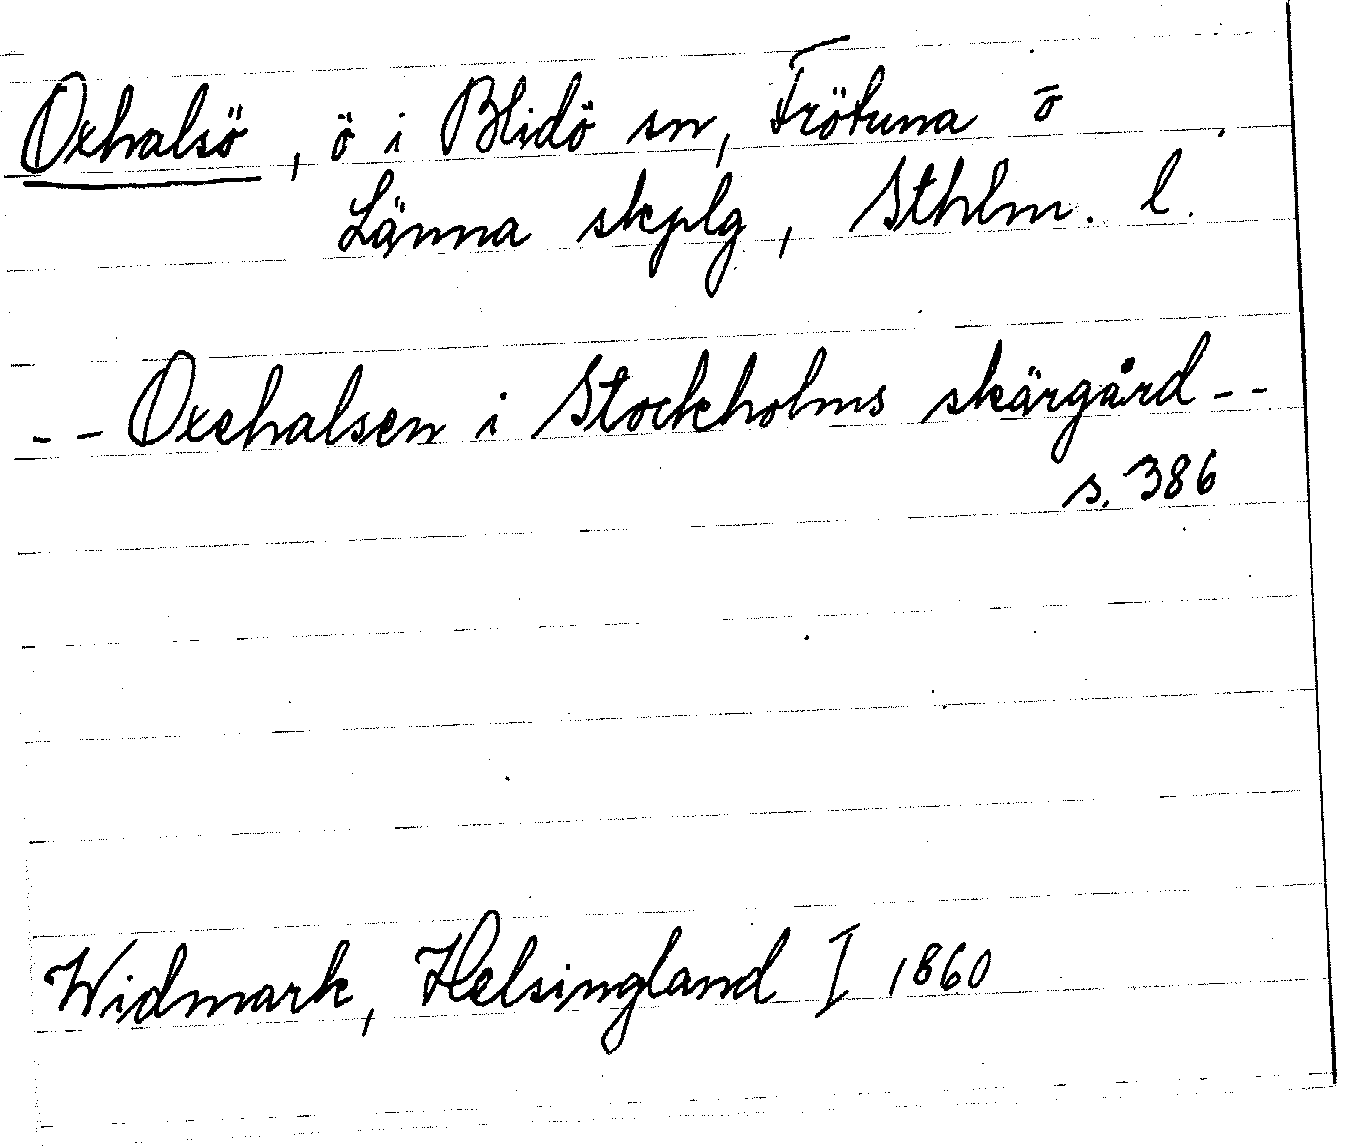 Oxhalsö, ö i Blidö sn, Frötuna o
Länna skplg, Sthlm. l.
- - Oxehalsen i Stockholms skärgård - -
s. 386
Widmark, Helsingland I 1860